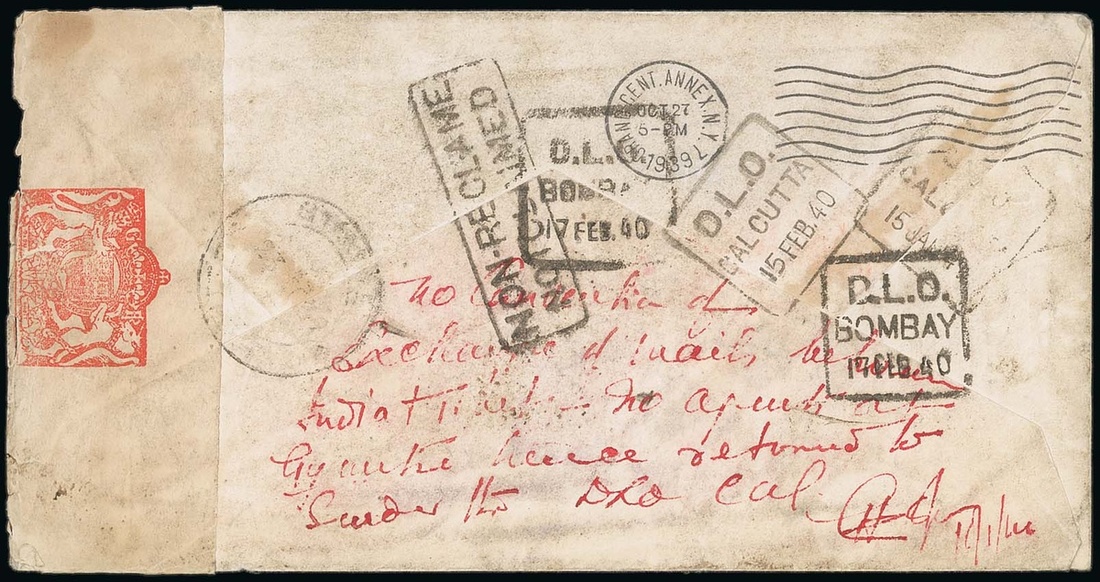 NON-RECLAME
NOT CLAIMED
D.L.O.
BOMBAY
17 FEB. 40
GRAND CENT. ANNEX. N.Y.
OCT 27
5-PM
1939
D.L.O.
CALCUTTA
15 FEB. 40
CAL
15 JAN
D.L.O.
BOMBAY
17 FEB. 40
No Convention of
Exchange of mails between
India & Tibet - No agents at
Gyantse hence returned to
Sender thro DLO Cal.